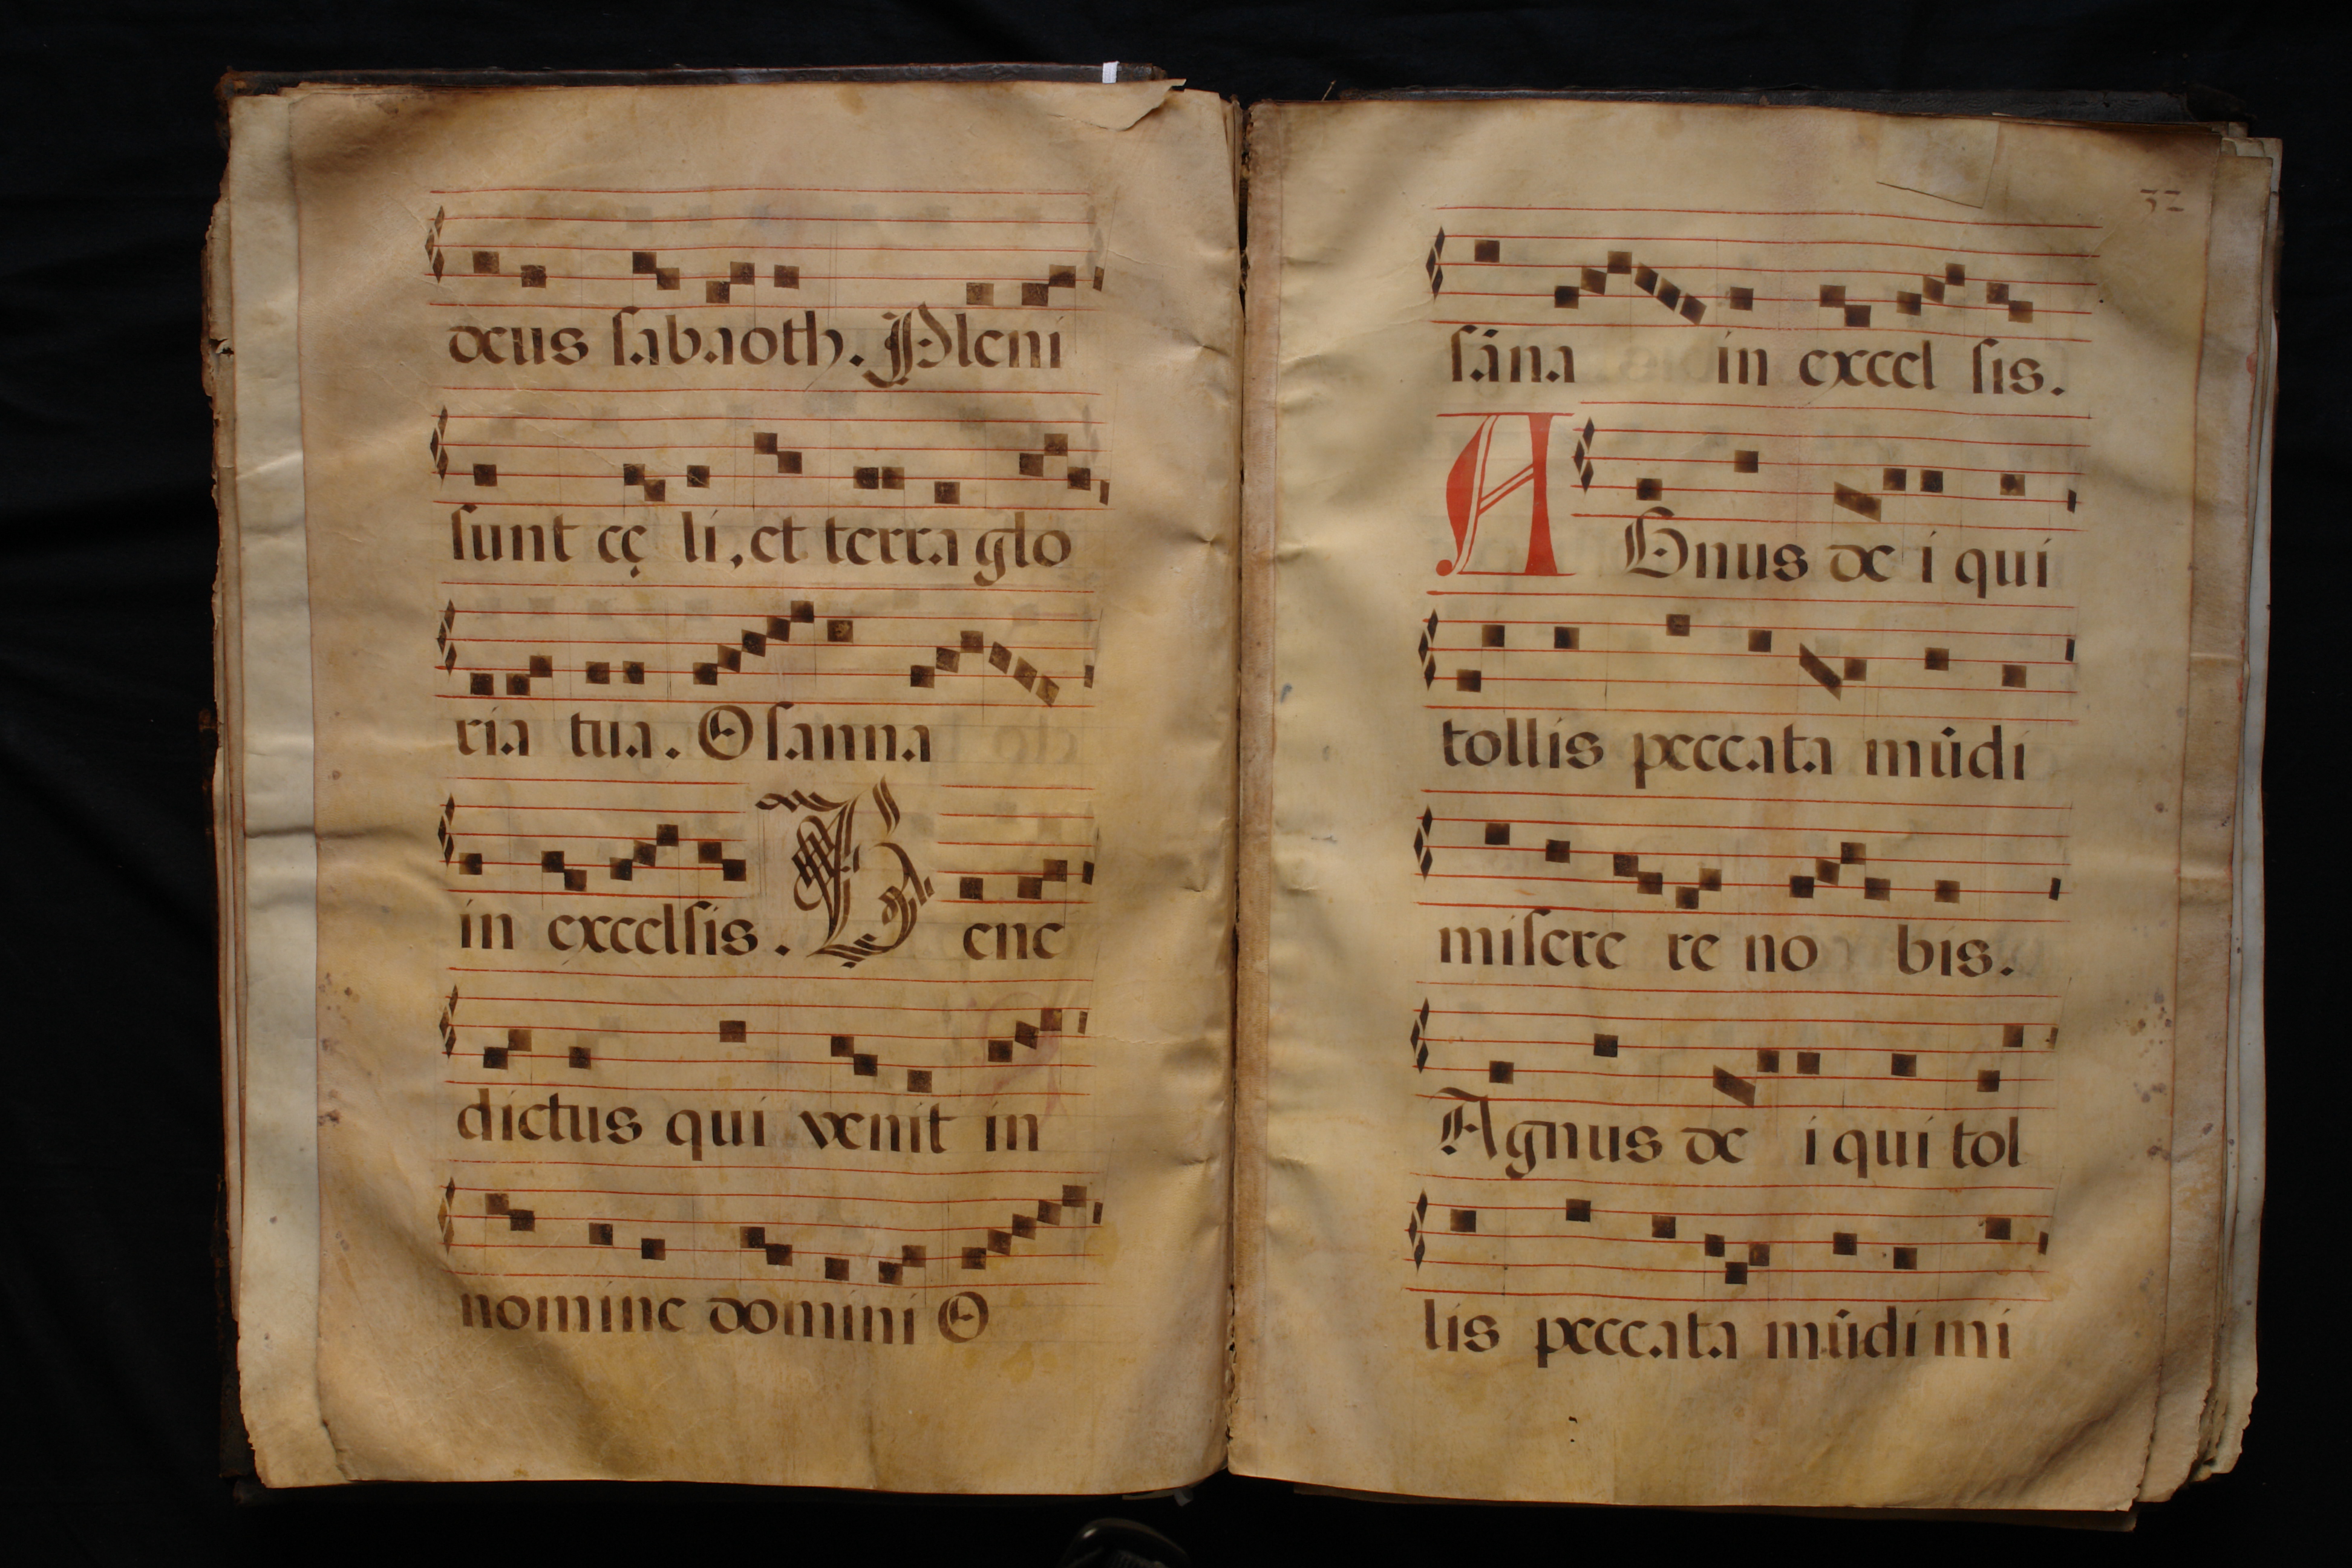 deus ſabaoth. Pleni
ſunt cę li, et terra glo
ria tua. Oſanna
in excelſis. Bene
dictus qui venit in
nomine domini O
32
ſāna in excel ſis.
AGnus de i qui
tollis peccata mūdi
miſere re no bis.
Agnus de i qui tol
lis peccata mūdi mi